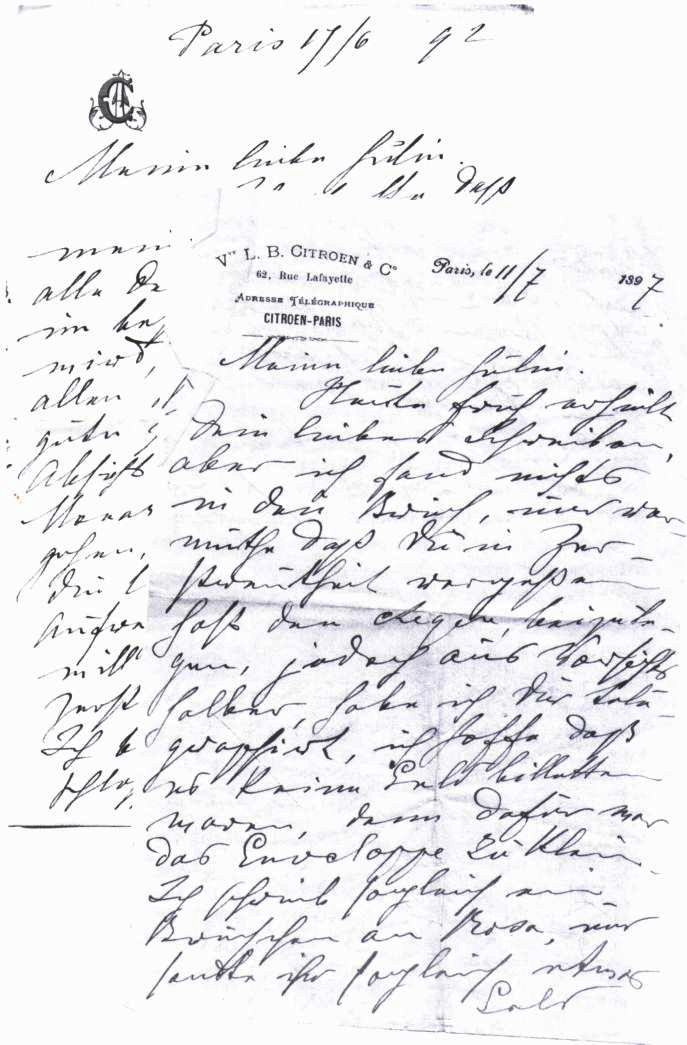 Paris 17/6 92
Meine liebe Julie.
daß
mein
alle De
im be
wird,
allen
gute
Absicht
gehen,
die
zerst
Ich
Vve L. B. CITROEN & Co
62, Rue Lafayette
ADRESSE TÉLÉGRAPHIQUE
CITROEN-PARIS
Paris, le 11/7 1897
Meine liebe Julie.
Heute früh erhielt
Dein liebes Schreiben,
aber ich fand nichts
in den Brief, nur ver-
muthe daß Du in Zer-
streutheit vergeßen
hast den beizule-
gen, jedoch aus Vorsichts
halber, habe ich Dir tele-
graphirt, ich hoffe daß
es keine Geld billetten
waren, denn dafür war
das Enveloppe zu klein.
Ich schrieb sogleich ein
Briefchen an Rosa, und
sandte ihr sogleich etwas
Geld